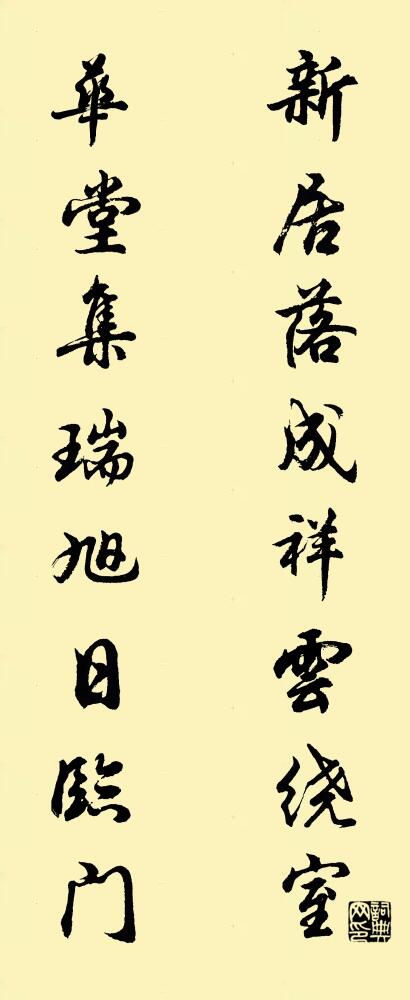 新居落成祥雲绕室
華堂集瑞旭日臨门
詞典网印